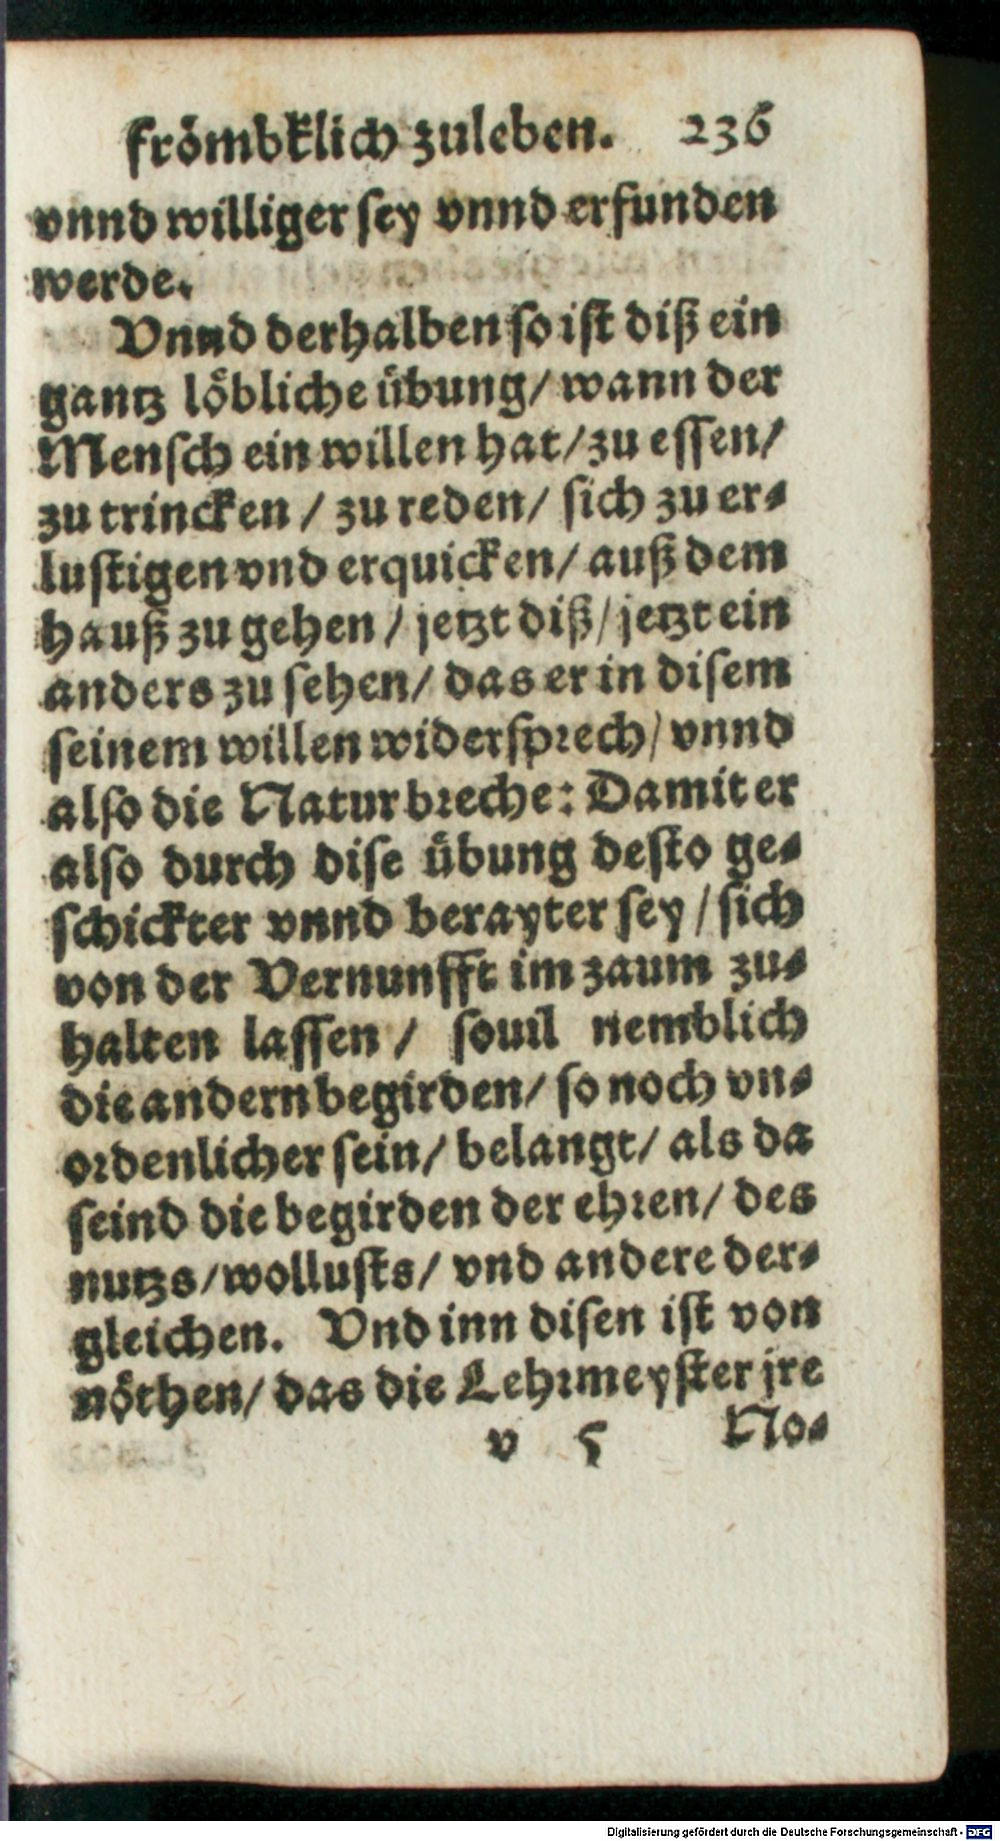 frömbklich zuleben. 236
vnnd williger sey vnnd erfunden
werde.
Vnnd derhalben so ist diß ein
gantz löbliche übung/ wann der
Mensch ein willen hat/ zu essen/
zu trincken / zu reden/ sich zu er⸗
lustigen vnd erquicken/ auß dem
hauß zu gehen / jetzt diß/ jetzt ein
anders zu sehen/ das er in disem
seinem willen widersprech/ vnnd
also die Natur breche: Damit er
also durch dise übung desto ge⸗
schickter vnnd berayter sey / sich
von der Vernunfft im zaum zu⸗
halten lassen / souil nemblich
die andern begirden/ so noch vn⸗
ordenlicher sein/ belangt/ als da
seind die begirden der ehren/ des
nutzs/ wollusts/ vnd andere der⸗
gleichen. Vnd inn disen ist von
nöthen/ das die Lehrmeyster jre
v 5 No⸗
Digitalisierung gefördert durch die Deutsche Forschungsgemeinschaft - DFG